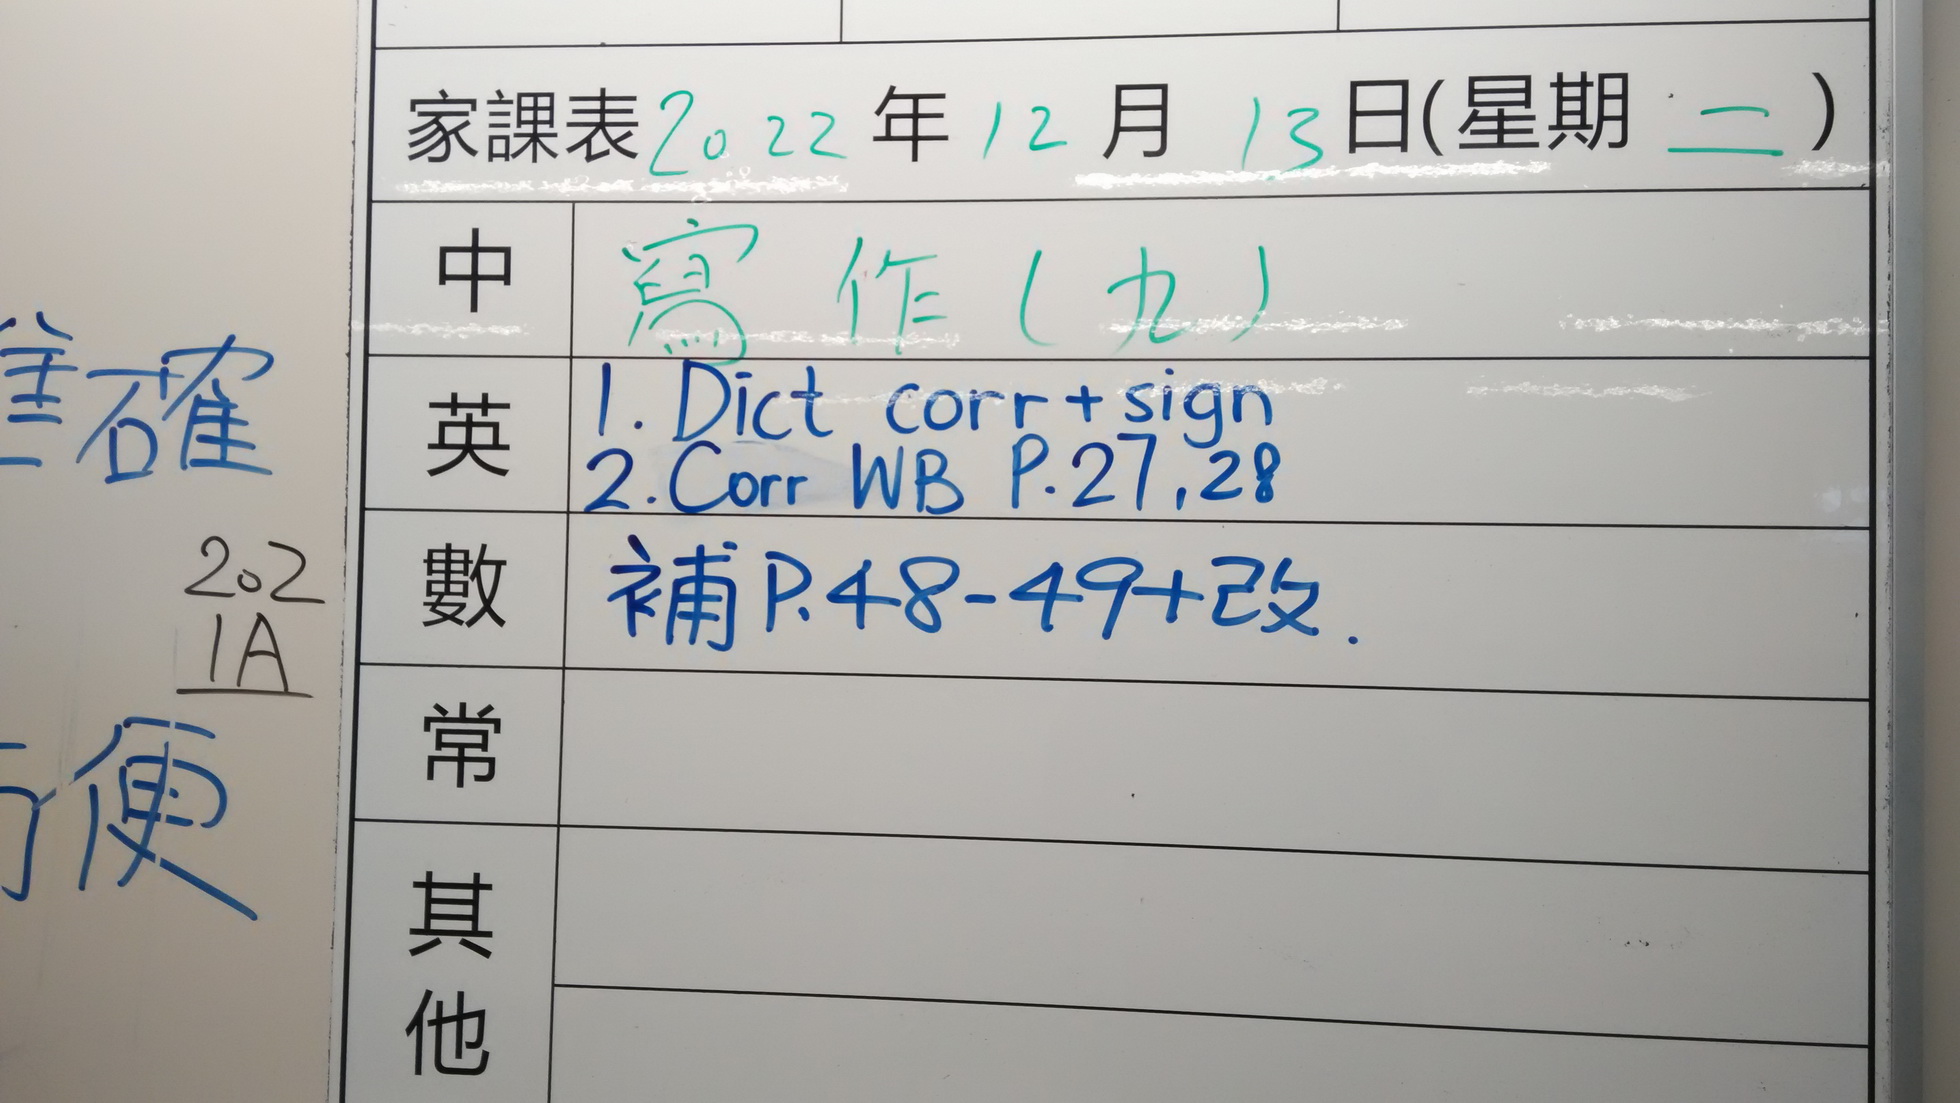 家課表2022年12月13日(星期二)
中 寫作(九)
英 1. Dict corr+sign
2. Corr WB P.27,28
數 補P.48-49+改.
常
其
他
準確
202
1A
便